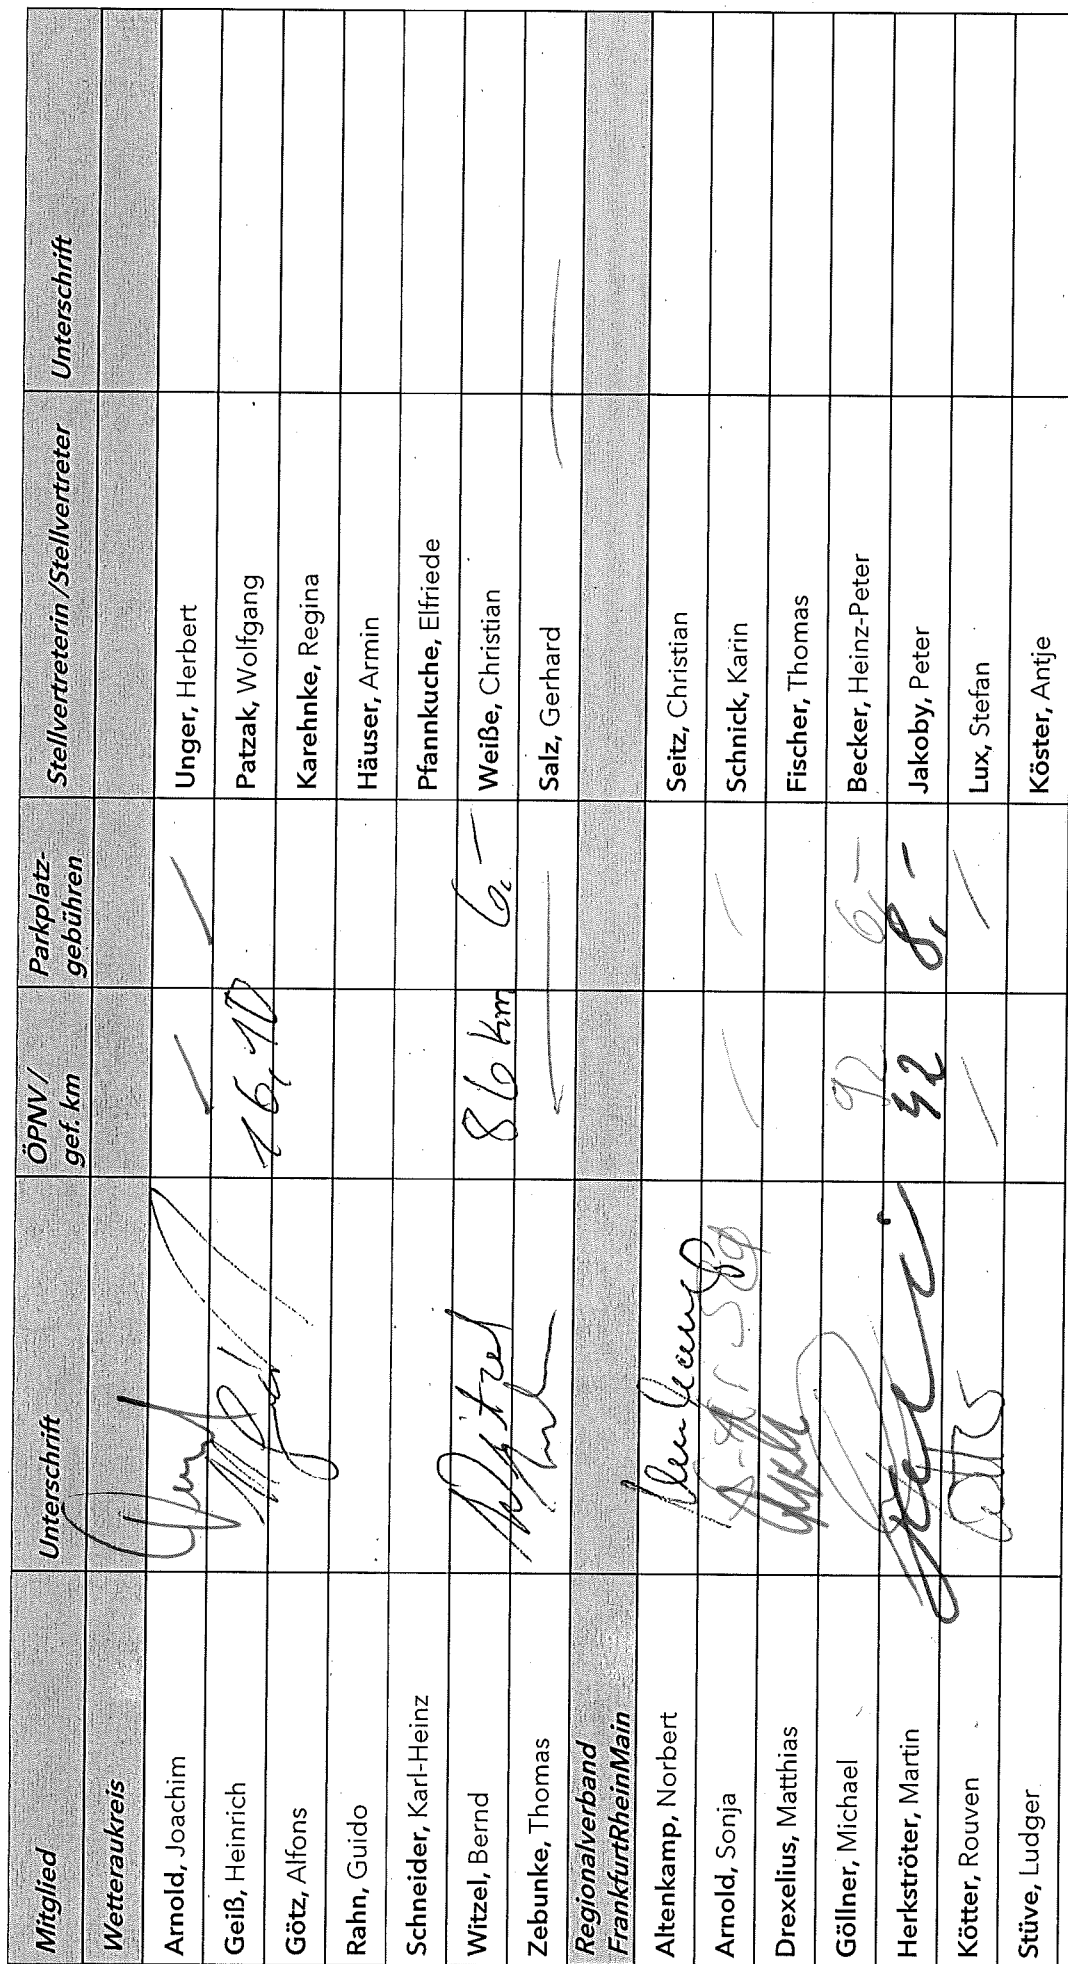 Mitglied Unterschrift ÖPNV / gef. km Parkplatz-gebühren Stellvertreterin /Stellvertreter Unterschrift
Wetteraukreis
Arnold, Joachim Unger, Herbert
Geiß, Heinrich 16,10 Patzak, Wolfgang
Götz, Alfons Karehnke, Regina
Rahn, Guido Häuser, Armin
Schneider, Karl-Heinz Pfannkuche, Elfriede
Witzel, Bernd Witzel 86 km 6,- Weiße, Christian
Zebunke, Thomas Salz, Gerhard
Regionalverband
FrankfurtRheinMain
Altenkamp, Norbert Seitz, Christian
Arnold, Sonja Schnick, Karin
Drexelius, Matthias Fischer, Thomas
Göllner, Michael 92 6,- Becker, Heinz-Peter
Herkströter, Martin 42 8,- Jakoby, Peter
Kötter, Rouven Lux, Stefan
Stüve, Ludger Köster, Antje